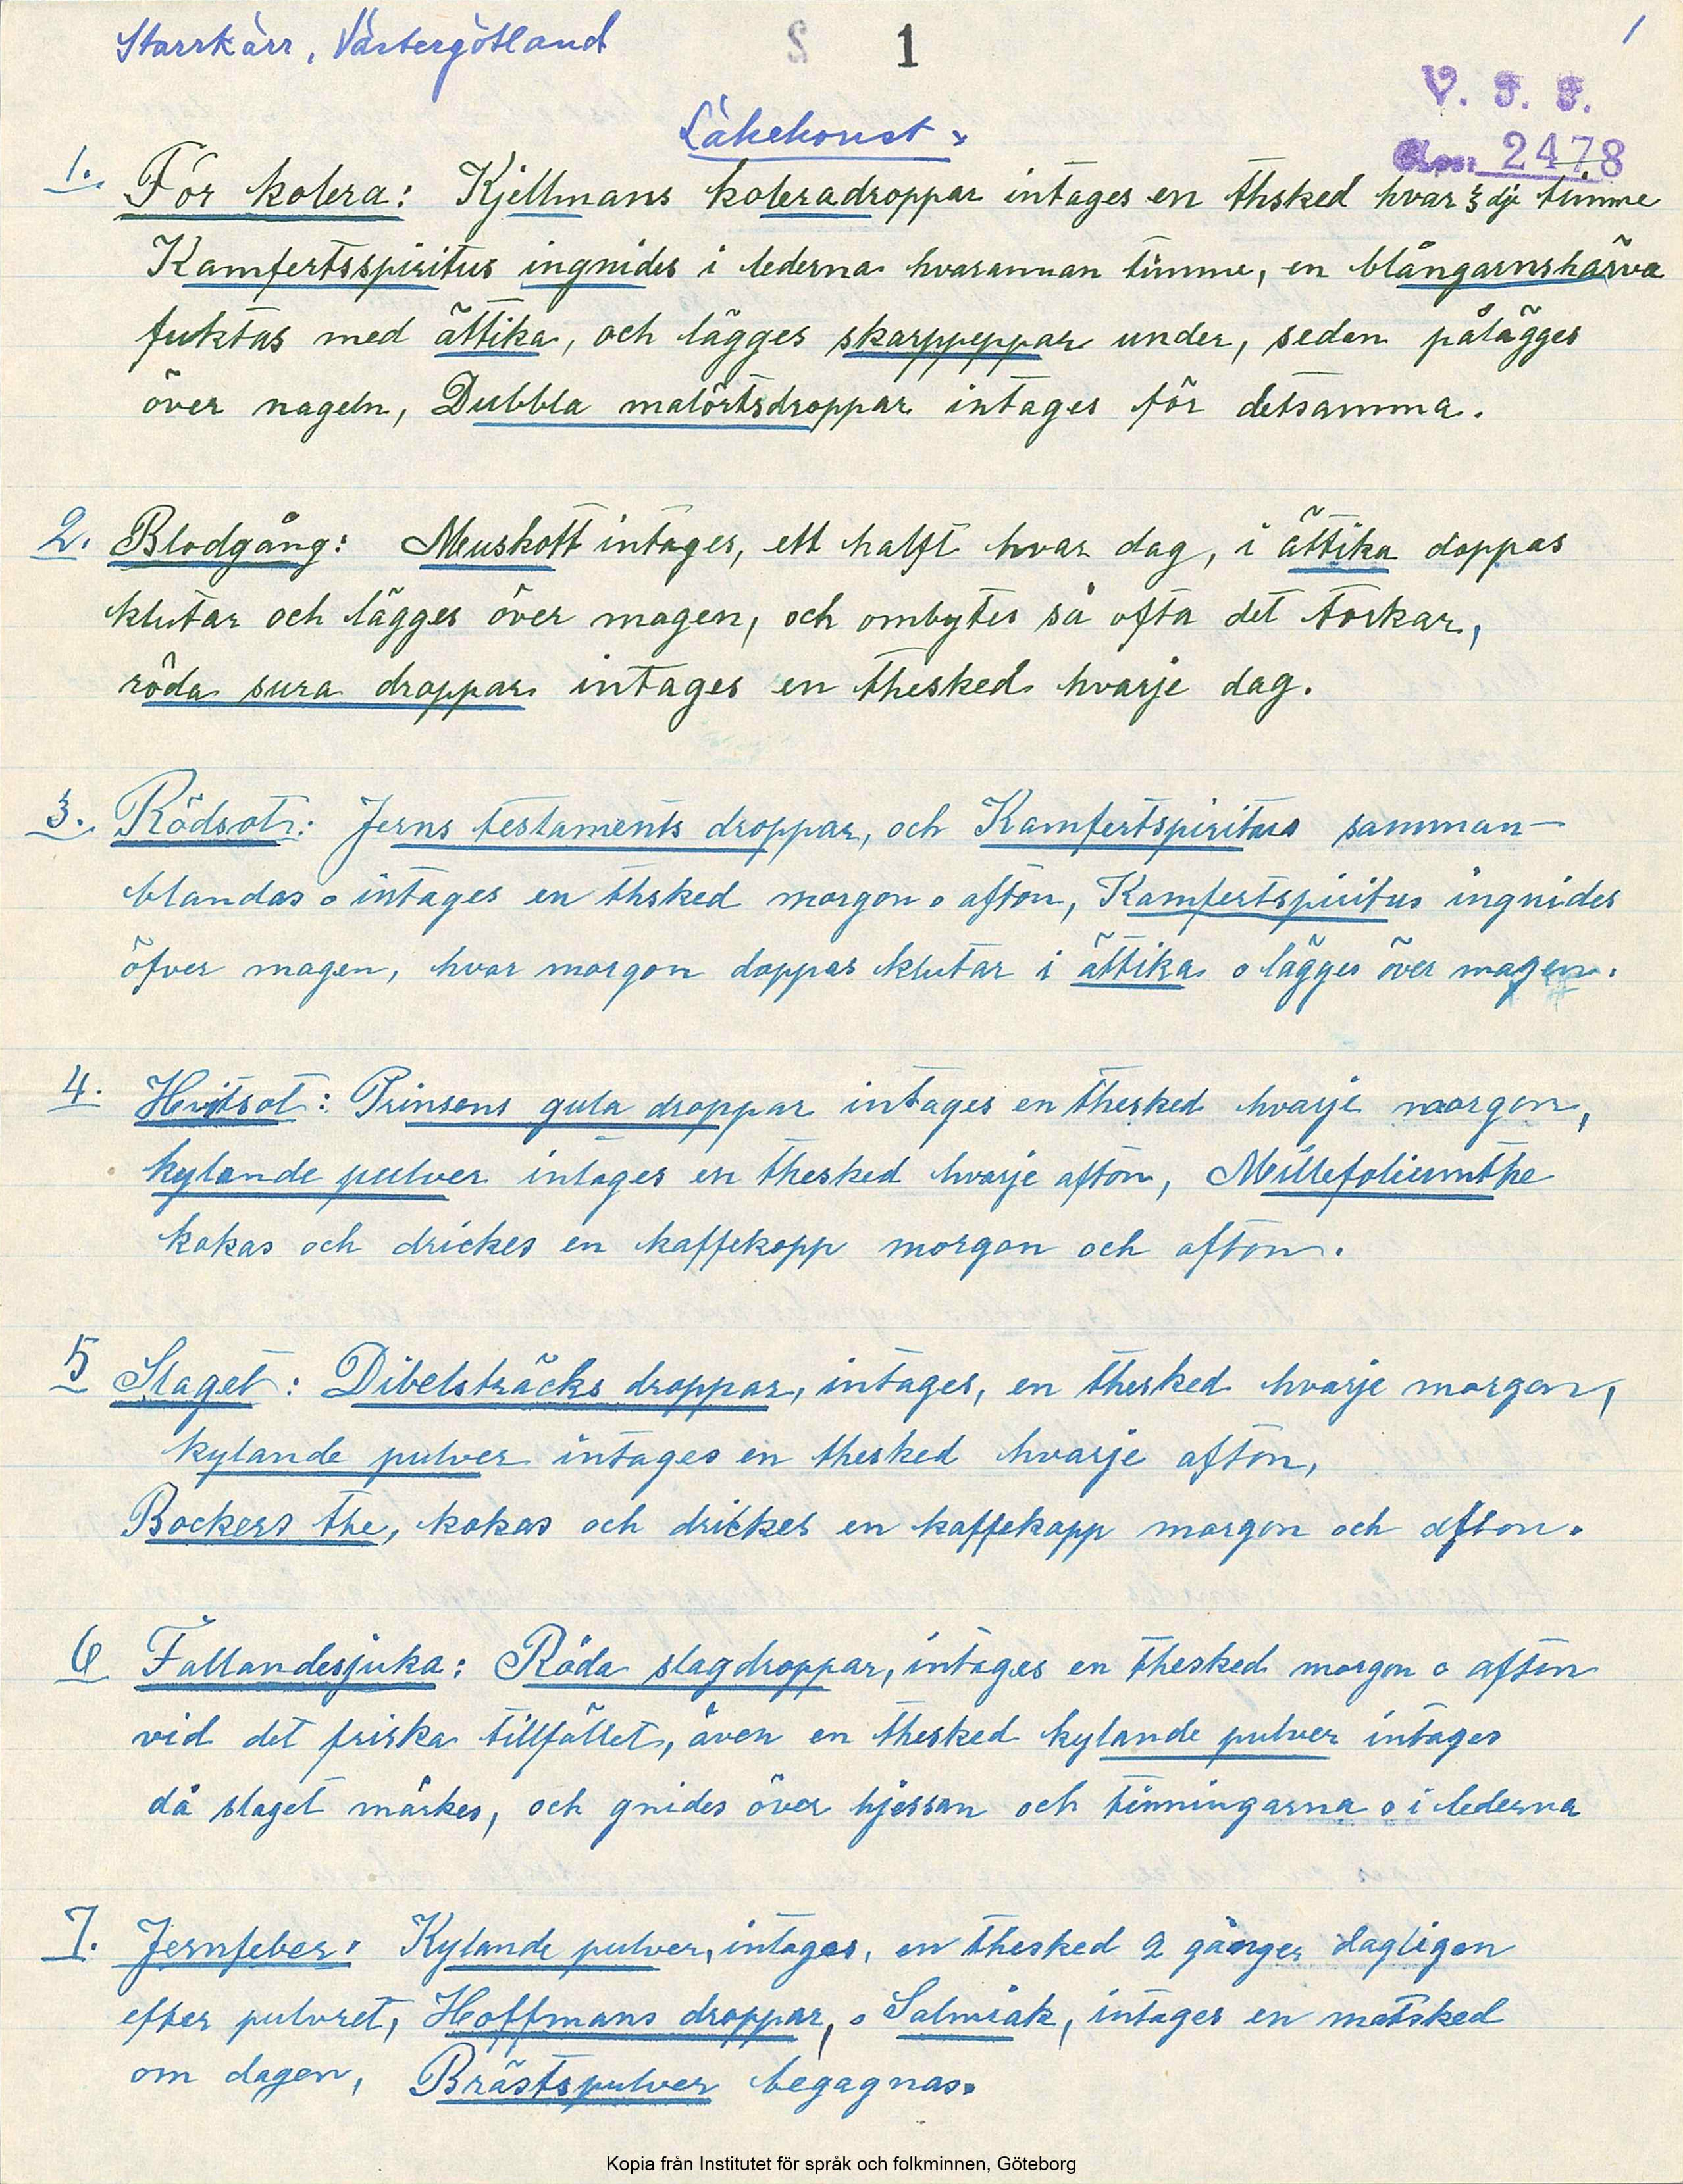 Starrkärr, Västergötland
S 1
1
V. F. F.
Acc. 2478
Läkekonst
1. För kolera: Kjellmans koleradroppar intages en thsked hvar 3dje timme
Kamfertsspiritus ingnides i lederna hvarannan timme, en blångarnshärva
fuktas med ättika, och lägges skarppeppar under, sedan pålägges
över nageln, Dubbla malörtsdroppar intages för detsamma.
2. Blodgång: Muskott intages, ett halft hvar dag, i ättika doppas
klutar och lägges över magen, och ombytes så ofta det torkar,
röda sura droppar intages en thesked hvarje dag.
3. Rödsot: Jerns testaments droppar, och Kamfertspiritus samman-
blandas o intages en thsked morgon o afton, Kamfertspiritus ingnides
öfver magen, hvar morgon doppas klutar i ättika o lägges över magen.
4. Hvitsot: Prinsens gula droppar intages en thesked hvarje morgon,
kylande pulver intages en thesked hvarje afton, Millefoliumthe
kokas och drickes en kaffekopp morgon och afton.
5 Slaget: Dibelsträcks droppar, intages, en thesked hvarje morgon,
kylande pulver intages en thesked hvarje afton,
Bockers the, kokas och drickes en kaffekopp morgon och afton.
6 Fallandesjuka: Röda slagdroppar, intages en thesked morgon o afton
vid det friska tillfället, även en thesked kylande pulver intages
då slaget märkes, och gnides över hjessan och tinningarna o i lederna
7. Jernfeber: Kylande pulver, intages, en thesked 2 gånger dagligen
efter pulvret, Hoffmans droppar, o Salmiak, intages en matsked
om dagen, Brästspulver begagnas.
Kopia från Institutet för språk och folkminnen, Göteborg